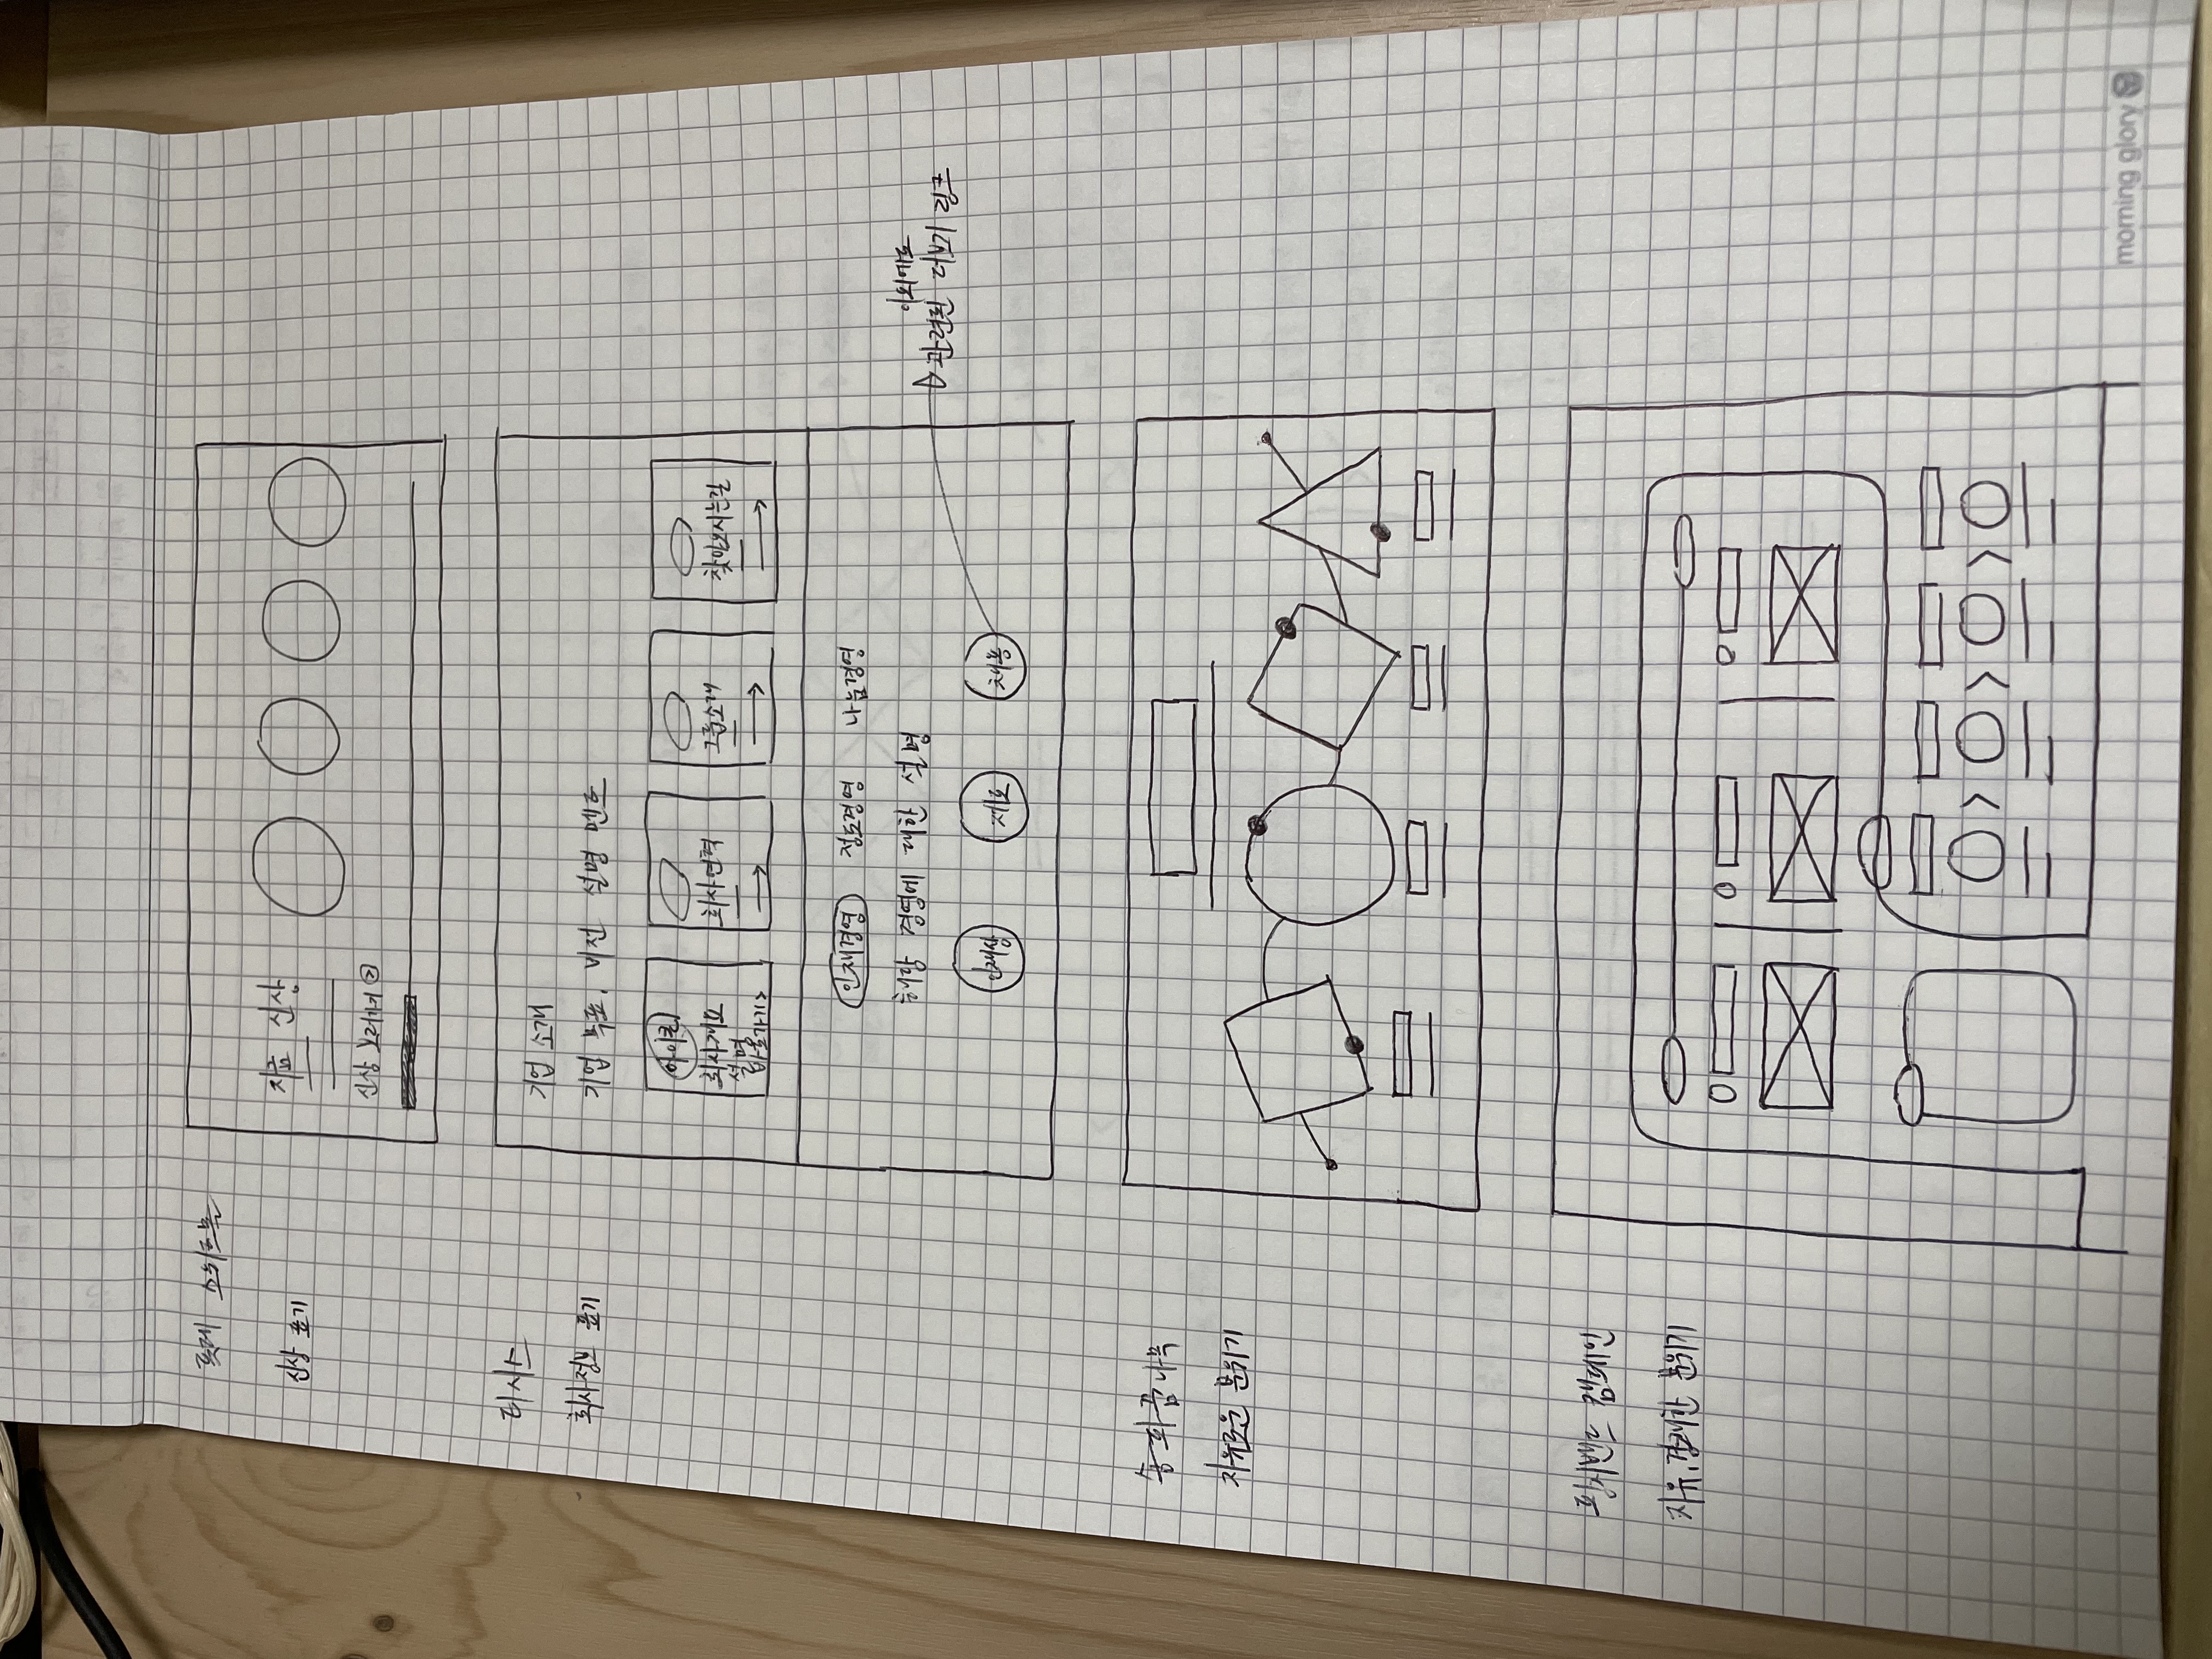 롯데 스위트몰
신상 표기
지금 신상
신상 보러가기 >
티시스
회사정보 표기
기업 소개
기업 목표, 비전 설명 멘트
아이콘
회사개요
설명
바로가기 >
회사연혁
그룹소개
찾아오시는길
인재경영 정도경영 나눔경영
해당 경영에 대한 설명
인재상 제도 채용
이외에도
관련된 더보기 링크
송화꿈나무
자유로운 분위기
핑시밴드 캠페인
자유, 경쾌한 분위기
morning glory